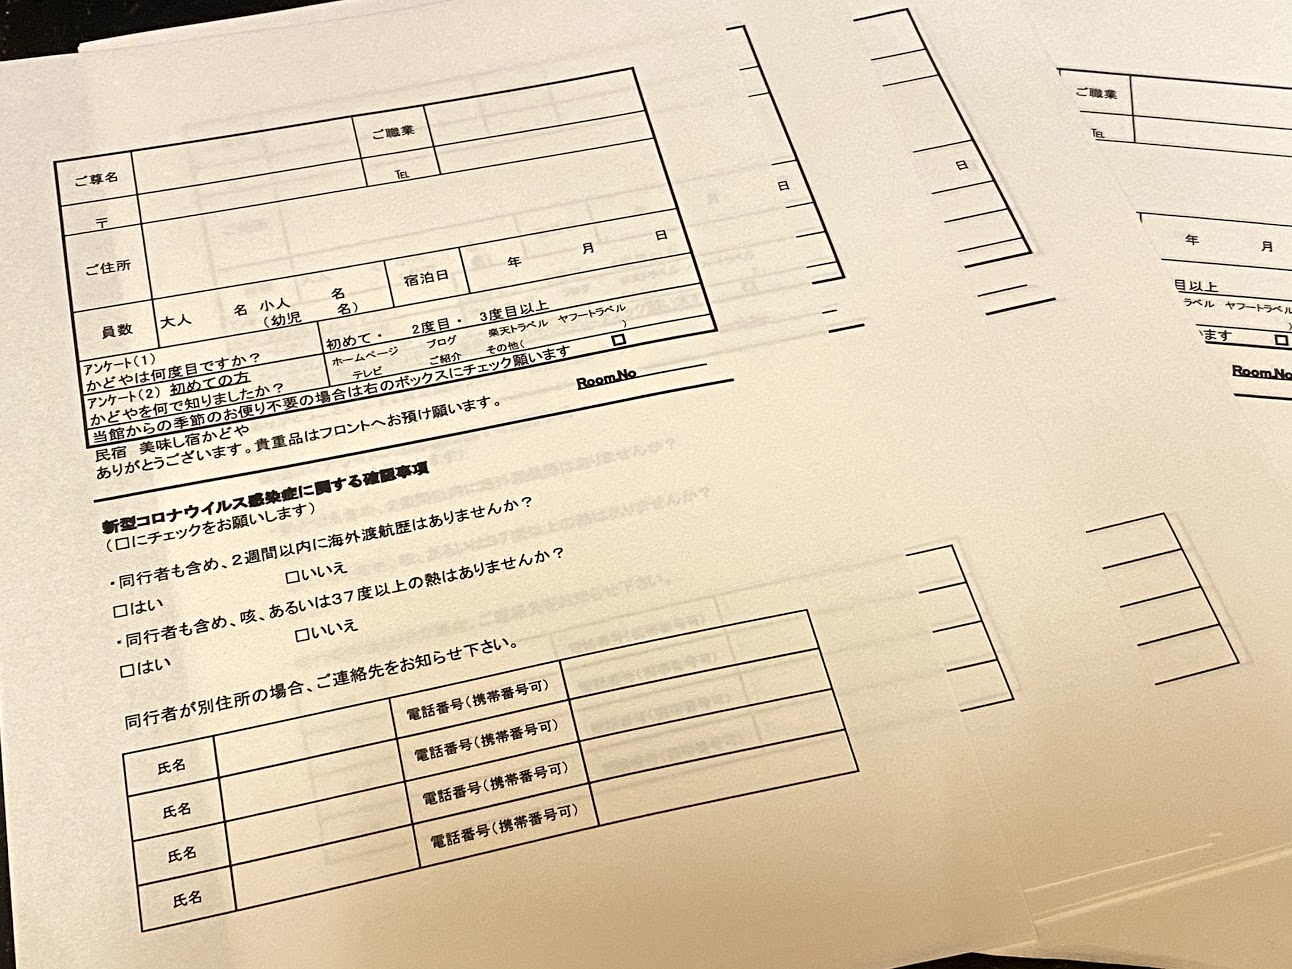 ご尊名 ご職業
〒 TEL
ご住所
員数 大人 名 小人 名 宿泊日 年 月 日
（幼児 名）
アンケート（1）
かどやは何度目ですか？ 初めて・ 2度目・ 3度目以上
アンケート（2） 初めての方
かどやを何で知りましたか？
ホームページ ブログ 楽天トラベル ヤフートラベル
テレビ ご紹介 その他( )
当館からの季節のお便り不要の場合は右のボックスにチェック願います □
民宿 美味し宿かどや
ありがとうございます。貴重品はフロントへお預け願います。
Room.No
新型コロナウイルス感染症に関する確認事項
（□にチェックをお願いします）
・同行者も含め、２週間以内に海外渡航歴はありませんか？
□はい □いいえ
・同行者も含め、咳、あるいは３７度以上の熱はありませんか？
□はい □いいえ
同行者が別住所の場合、ご連絡先をお知らせ下さい。
氏名 電話番号（携帯番号可）
氏名 電話番号（携帯番号可）
氏名 電話番号（携帯番号可）
氏名 電話番号（携帯番号可）
日
日
ご職業
TEL
年 月
目以上
ラベル ヤフートラベル
)
います □
Room.No